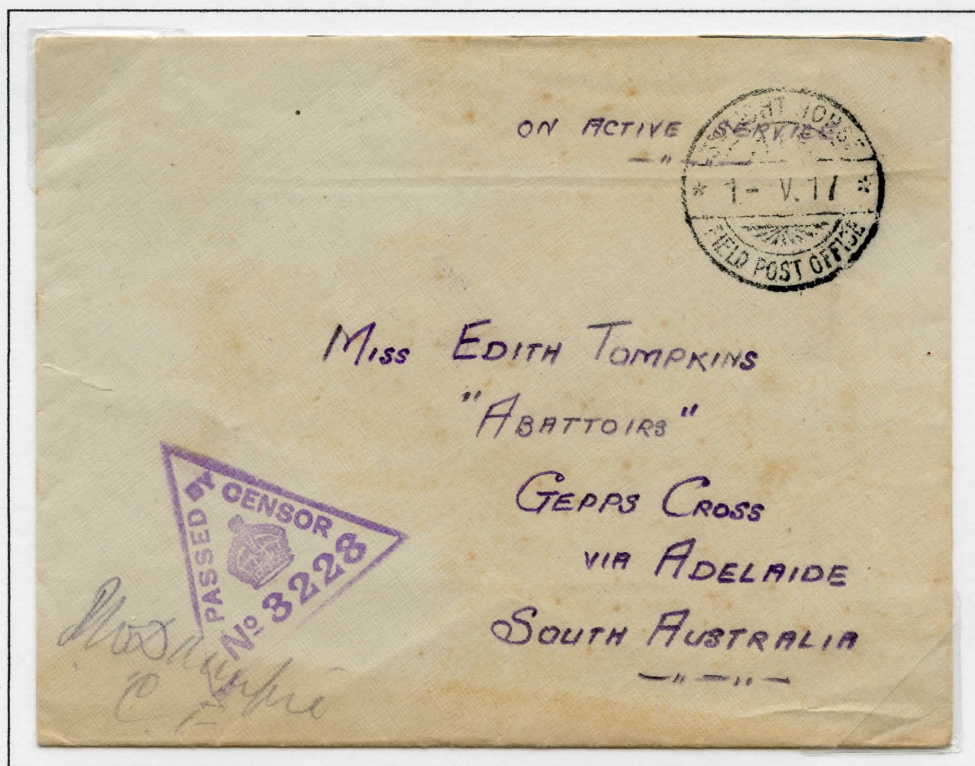 ON ACTIVE SERVICE
LIGHT HORSE
* 1- V.17 *
FIELD POST OFFICE
MISS EDITH TOMPKINS
"ABATTOIRS"
GEPPS CROSS
VIA ADELAIDE
SOUTH AUSTRALIA
PASSED BY CENSOR
No 3228
C.F.